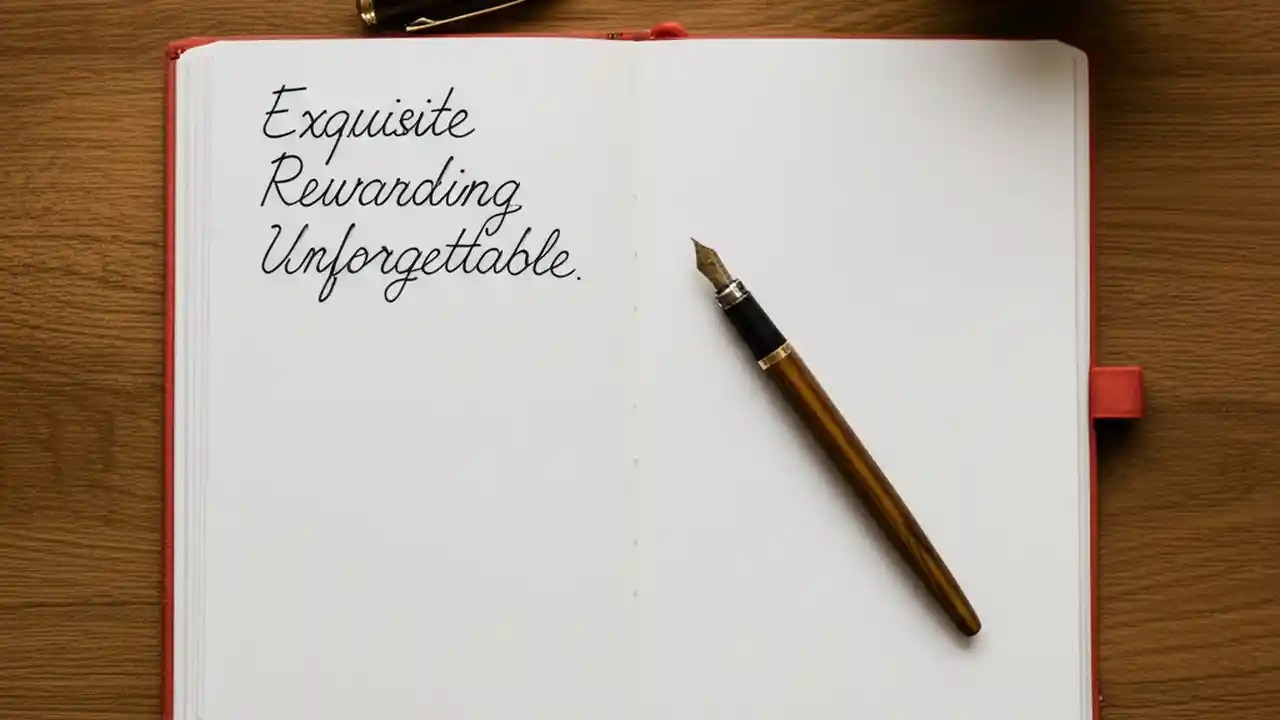 Exquisite
Rewarding
Unforgettable.